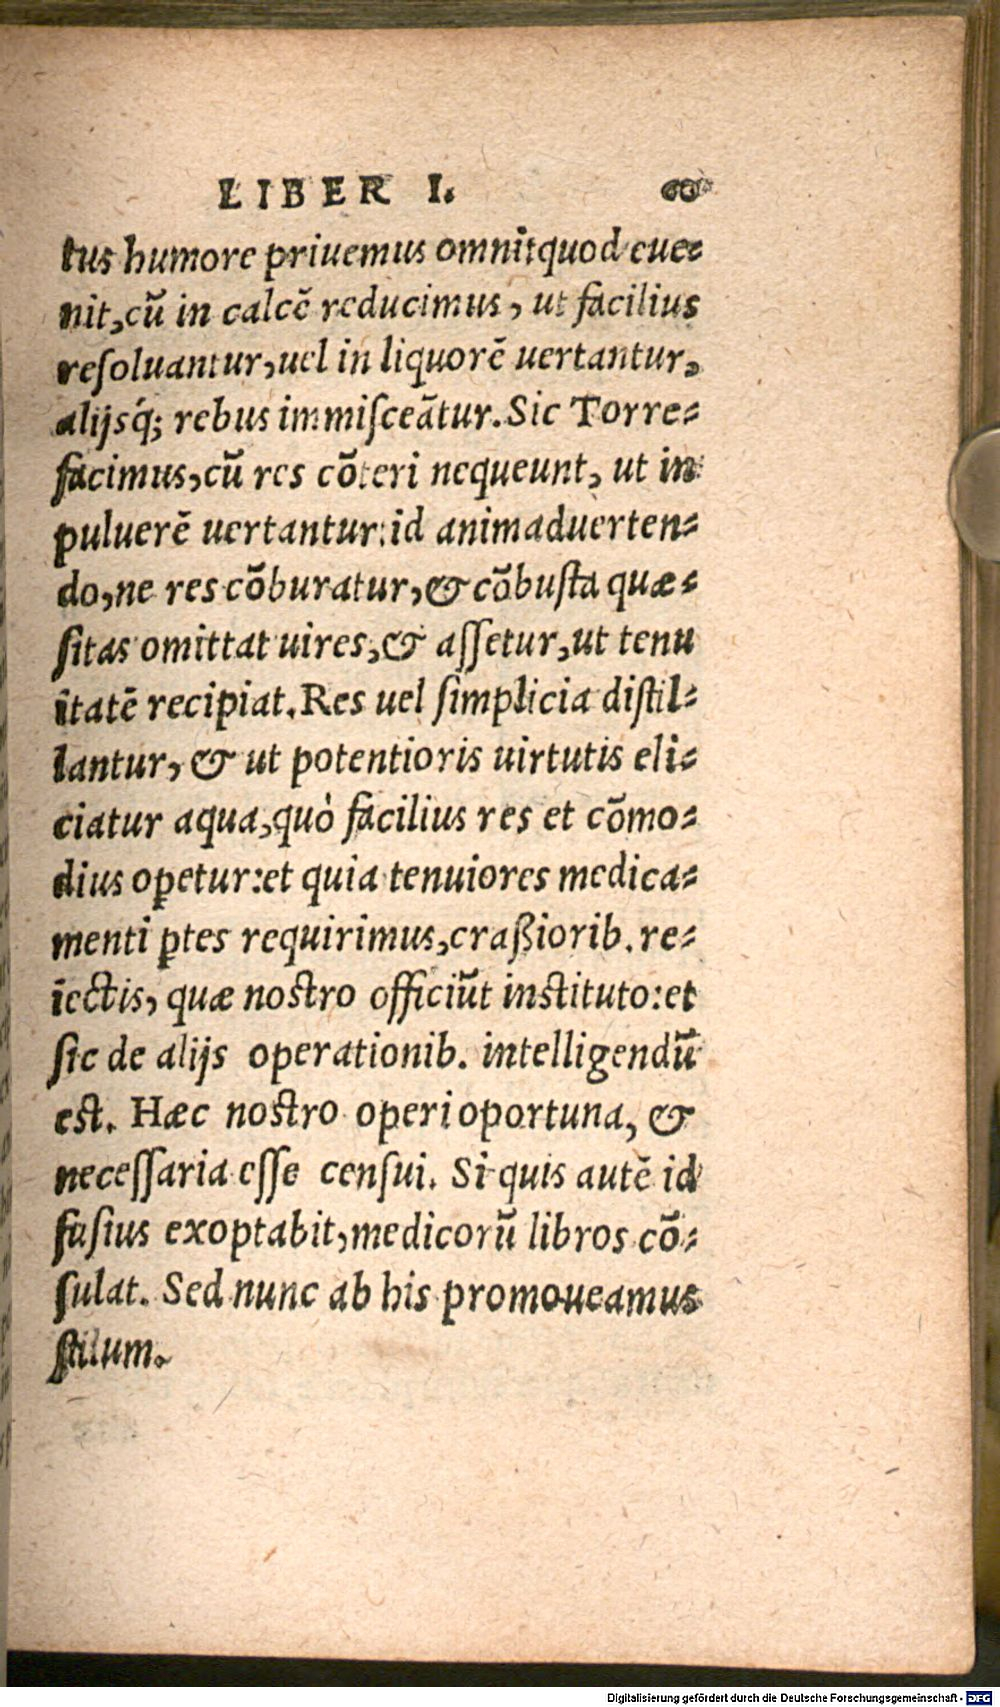 LIBER I. 60
tus humore priuemus omnı̃tquod eue-
nit, cũ in calcẽ reducimus, ut facilius
reſoluantur, uel in liquorẽ uertantur,
alijsq́; rebus immiſceãtur. Sic Torre-
facimus, cũ res cõteri nequeunt, ut in
puluerẽ uertantur: id animaduerten-
do, ne res cõburatur, & cõbuſta quæ-
ſitas omittat uires, & aſſetur, ut tenu
itatẽ recipiat. Res uel ſimplicia diſtil-
lantur, & ut potentioris uirtutis eli-
ciatur aqua, quò facilius res et cõmo-
dius oꝑetur: et quia tenuiores medica-
menti ꝑtes requirimus, craßiorib. re-
iectis, quæ noſtro officiũt inſtituto: et
ſic de alijs operationib. intelligendũ
eſt. Hæc noſtro operi oportuna, &
neceſſaria eſſe cenſui. Si quis autẽ id
fuſius exoptabit, medicorũ libros cõ-
ſulat. Sed nunc ab his promoueamus
ſtilum.
Digitalisierung gefördert durch die Deutsche Forschungsgemeinschaft - DFG